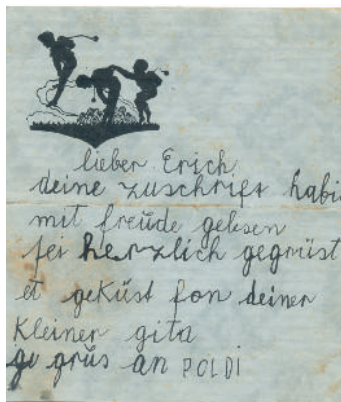 lieber Erich
deine zuschrift habi
mit freude gelesen
fei herzlich gegrüst
et geküst fon deiner
kleiner gita
grüs an POLDI